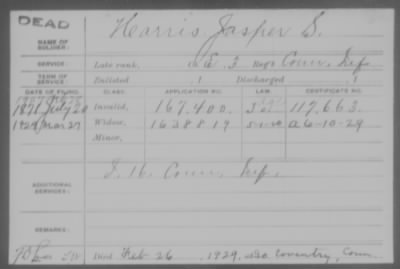 DEAD
NAME OF SOLDIER: Harris, Jasper S.
SERVICE: Late rank, Co. E, 3 Reg't Conn. Inf.
TERM OF SERVICE: Enlisted , 1 Discharged , 1
DATE OF FILING. CLASS. APPLICATION NO. LAW. CERTIFICATE NO.
1871 July 20 Invalid, 167.400. 117.663.
1929 Mar 27 Widow, 1638819 5-1-20 a 6-10-29
Minor,
ADDITIONAL SERVICES: I. 16. Conn. Inf.
REMARKS:
Died Feb 26, 1929, So. Coventry, Conn.